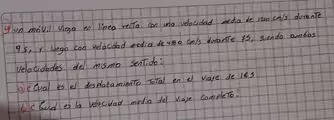 un móvil viaja en línea recta con una velocidad media de 1200 cm/s durante
9 s, y luego con velocidad media de 480 cm/s durante 7s, siendo ambas
velocidades del mismo sentido:
a) ¿Cual es el desplazamiento total en el viaje de 16s
b) ¿Cual es la velocidad media del viaje completo.